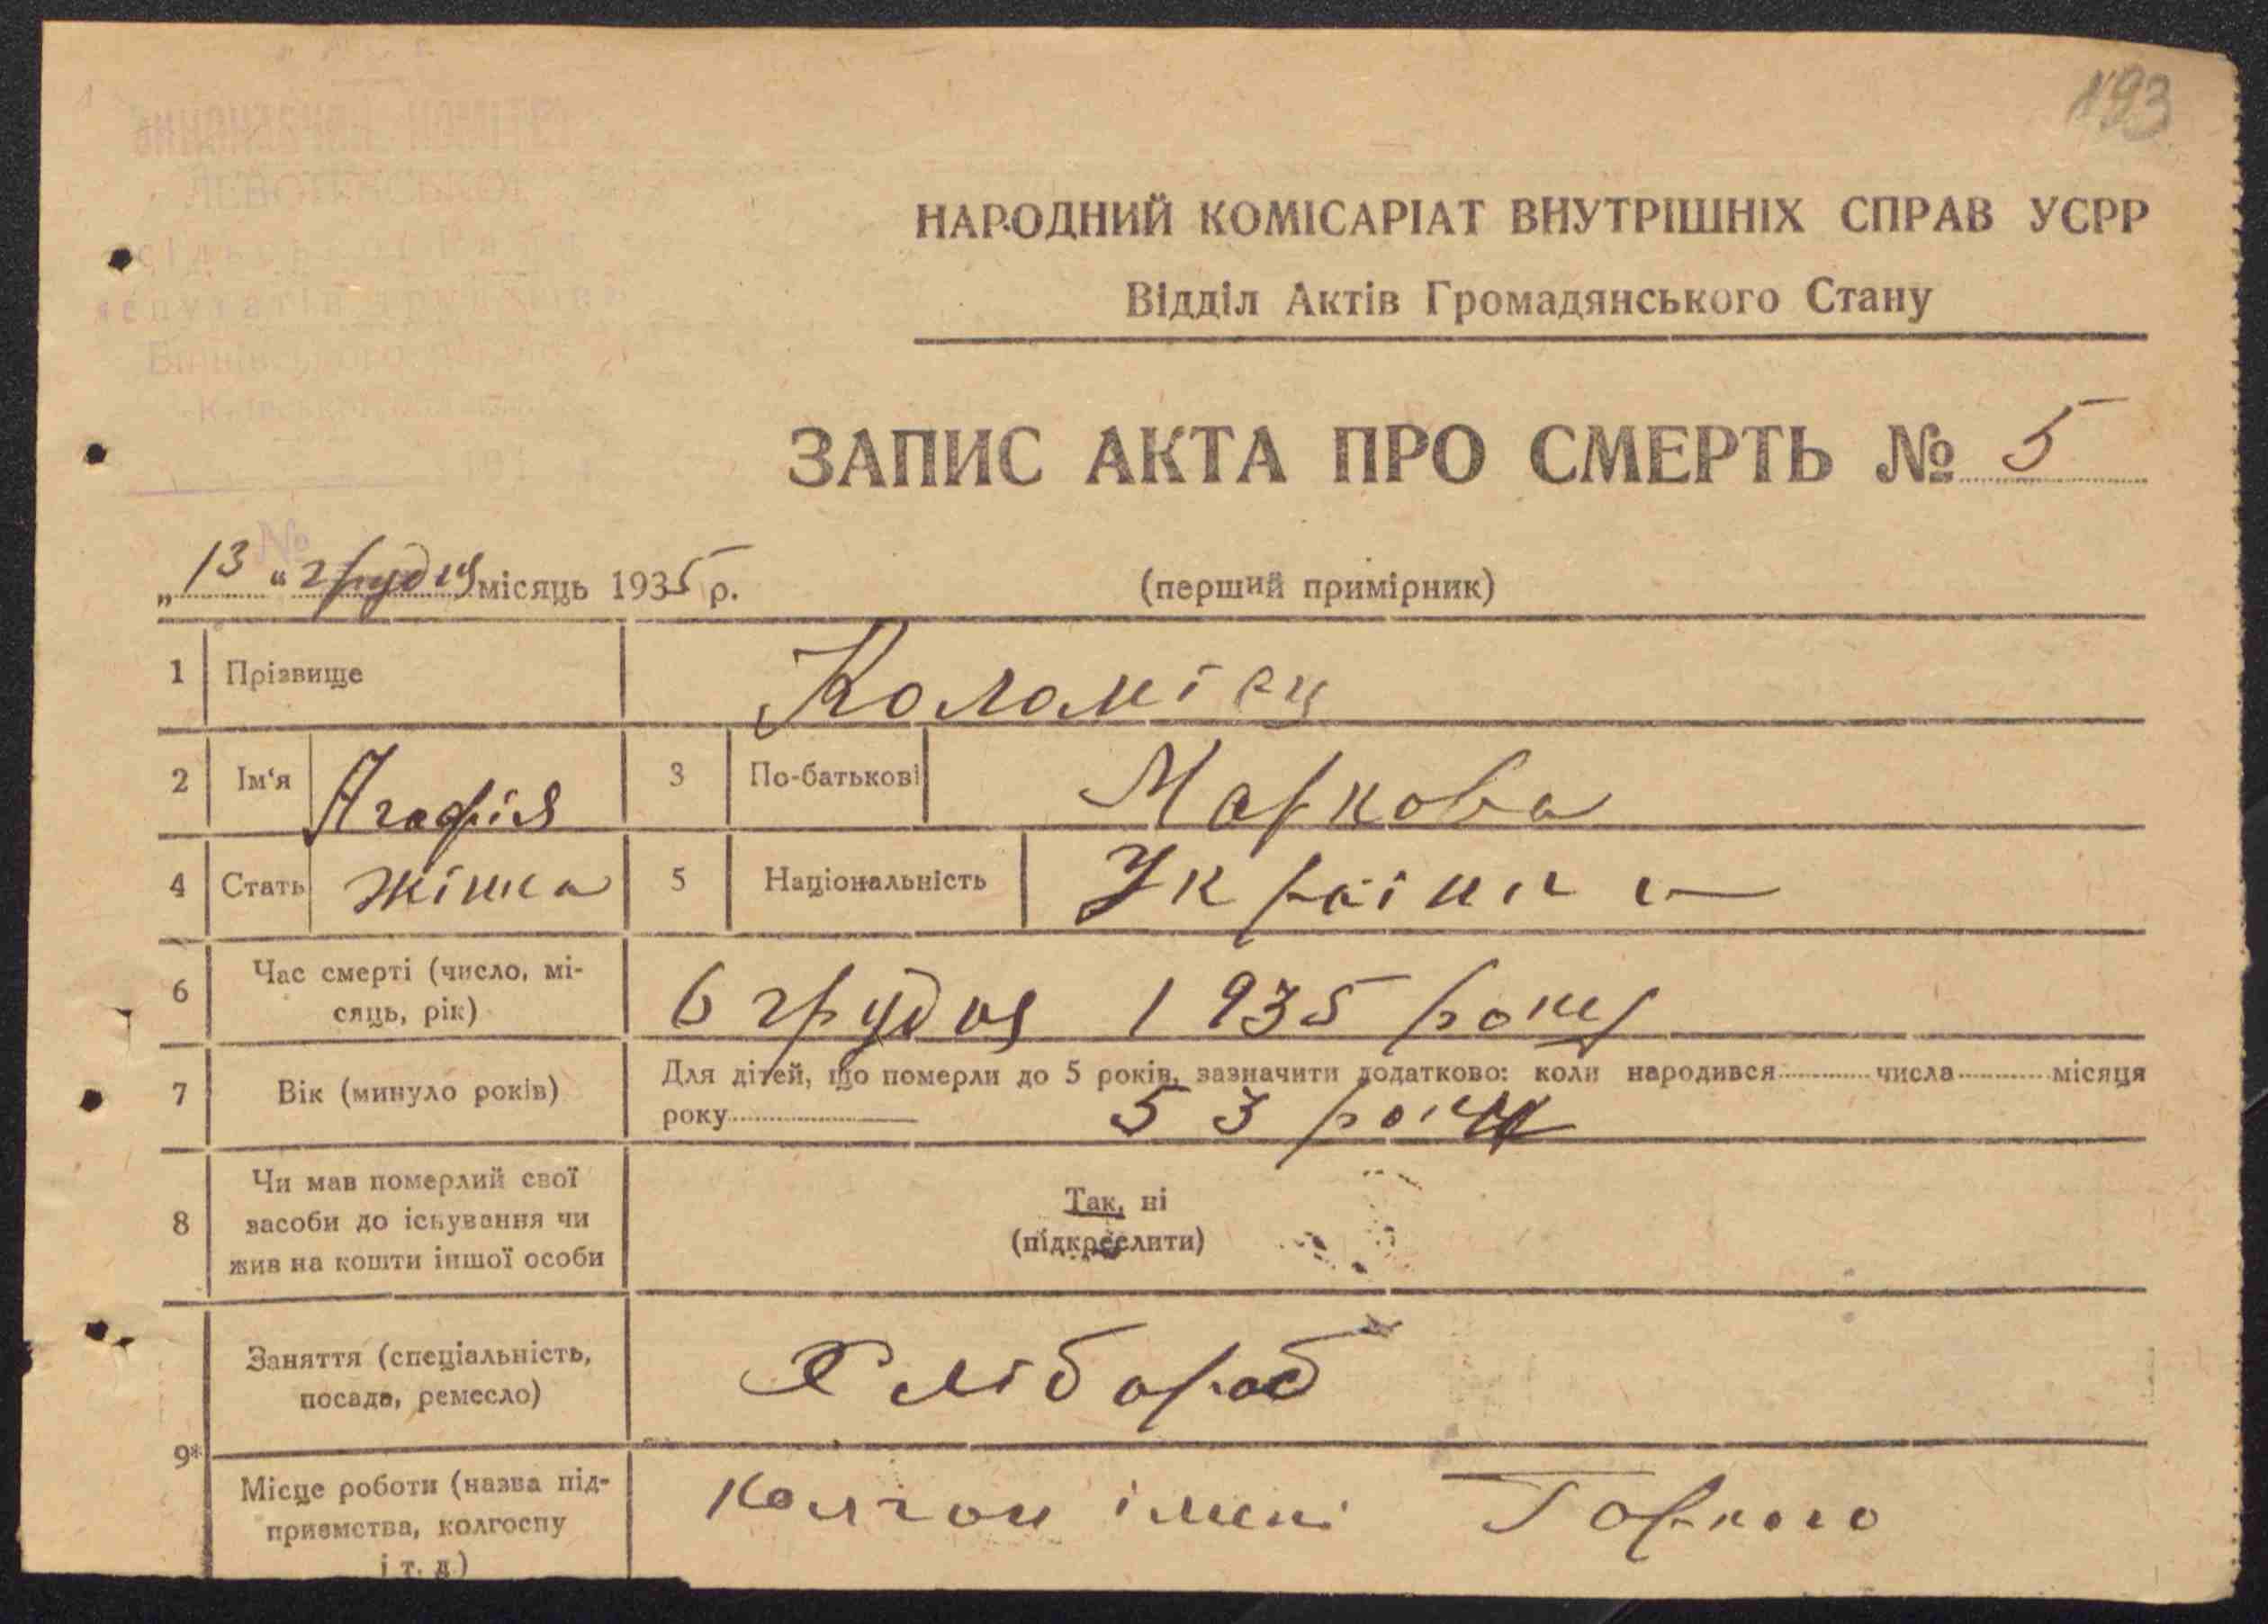 193
НАРОДНИЙ КОМІСАРІАТ ВНУТРІШНІХ СПРАВ УСРР
Відділ Актів Громадянського Стану
ЗАПИС АКТА ПРО СМЕРТЬ № 5
№
„ 13 " грудня місяць 1935 р.
(перший примірник)
1 Прізвище Коломієц
2 Ім'я Агафія 3 По-батькові Маркова
4 Стать жінка 5 Національність Українка
6 Час смерті (число, мі-
сяць, рік) 6 грудня 1935 року
7 Вік (минуло років) Для дітей, що померли до 5 років, зазначити додатково: коли народився числа місяця
року 53 роки
8 Чи мав померлий свої
засоби до існування чи
жив на кошти іншої особи
Так, ні
(підкреслити)
9* Заняття (спеціальність,
посада, ремесло) Хлібороб
Місце роботи (назва під-
приємства, колгоспу
і т. д) Колгосп імені Горького